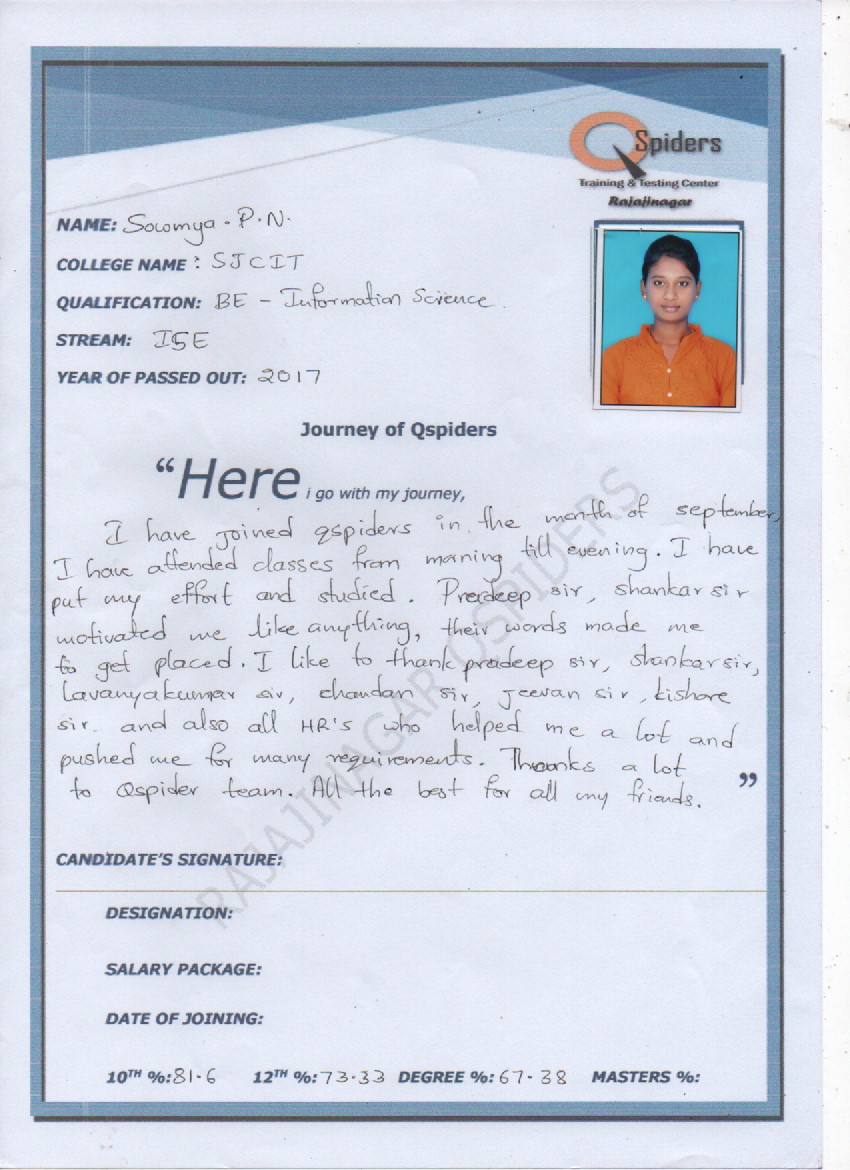 QSpiders
Training & Testing Center
Rajajinagar
NAME: Sowmya - P.N.
COLLEGE NAME : SJCIT
QUALIFICATION: BE - Information Science.
STREAM: ISE
YEAR OF PASSED OUT: 2017
Journey of Qspiders
“Here i go with my journey,
I have joined qspiders in the month of september,
I have attended classes from morning till evening. I have
put my effort and studied. Prerdeep sir, shankar sir
motivated me like anything, their words made me
to get placed. I like to thank pradeep sir, shankar sir,
Lavanyakumar sir, chandan sir, jeevan sir, kishore
sir. and also all HR's who helped me a lot and
pushed me for many requirements. Thanks a lot
to Qspider team. All the best for all my friends. ”
RAJAJINAGAR QSPIDERS
CANDIDATE'S SIGNATURE:
DESIGNATION:
SALARY PACKAGE:
DATE OF JOINING:
10TH %:81.6 12TH %:73.33 DEGREE %:67.38 MASTERS %: